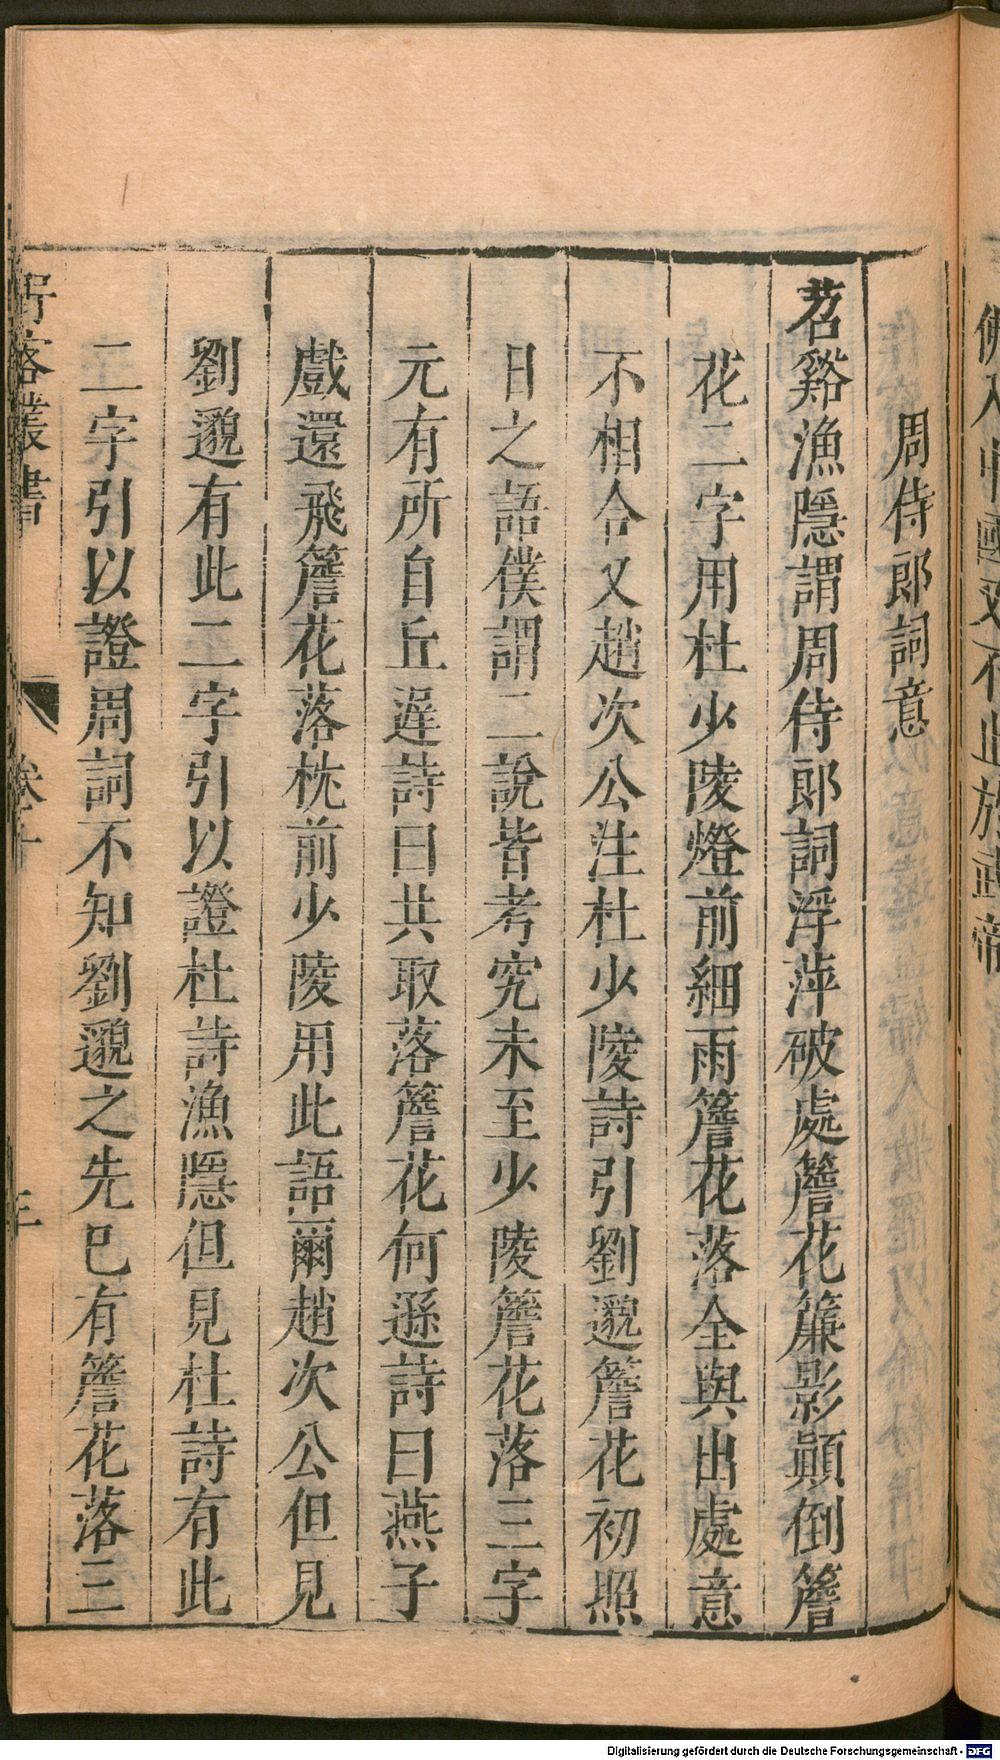 周侍郎詞意
苕谿漁隱謂周侍郎詞浮萍破處簷花簾影顚倒簷
花二字用杜少陵燈前細雨簷花落全與出處意
不相合又趙次公注杜少陵詩引劉邈簷花初照
日之語僕謂二說皆考究未至少陵簷花落三字
元有所自丘遲詩曰共取落簷花何遜詩曰燕子
戲還飛簷花落枕前少陵用此語爾趙次公但見
劉邈有此二字引以證杜詩漁隱但見杜詩有此
二字引以證周詞不知劉邈之先已有簷花落三
客叢書
卷十
Digitalisierung gefördert durch die Deutsche Forschungsgemeinschaft - DFG